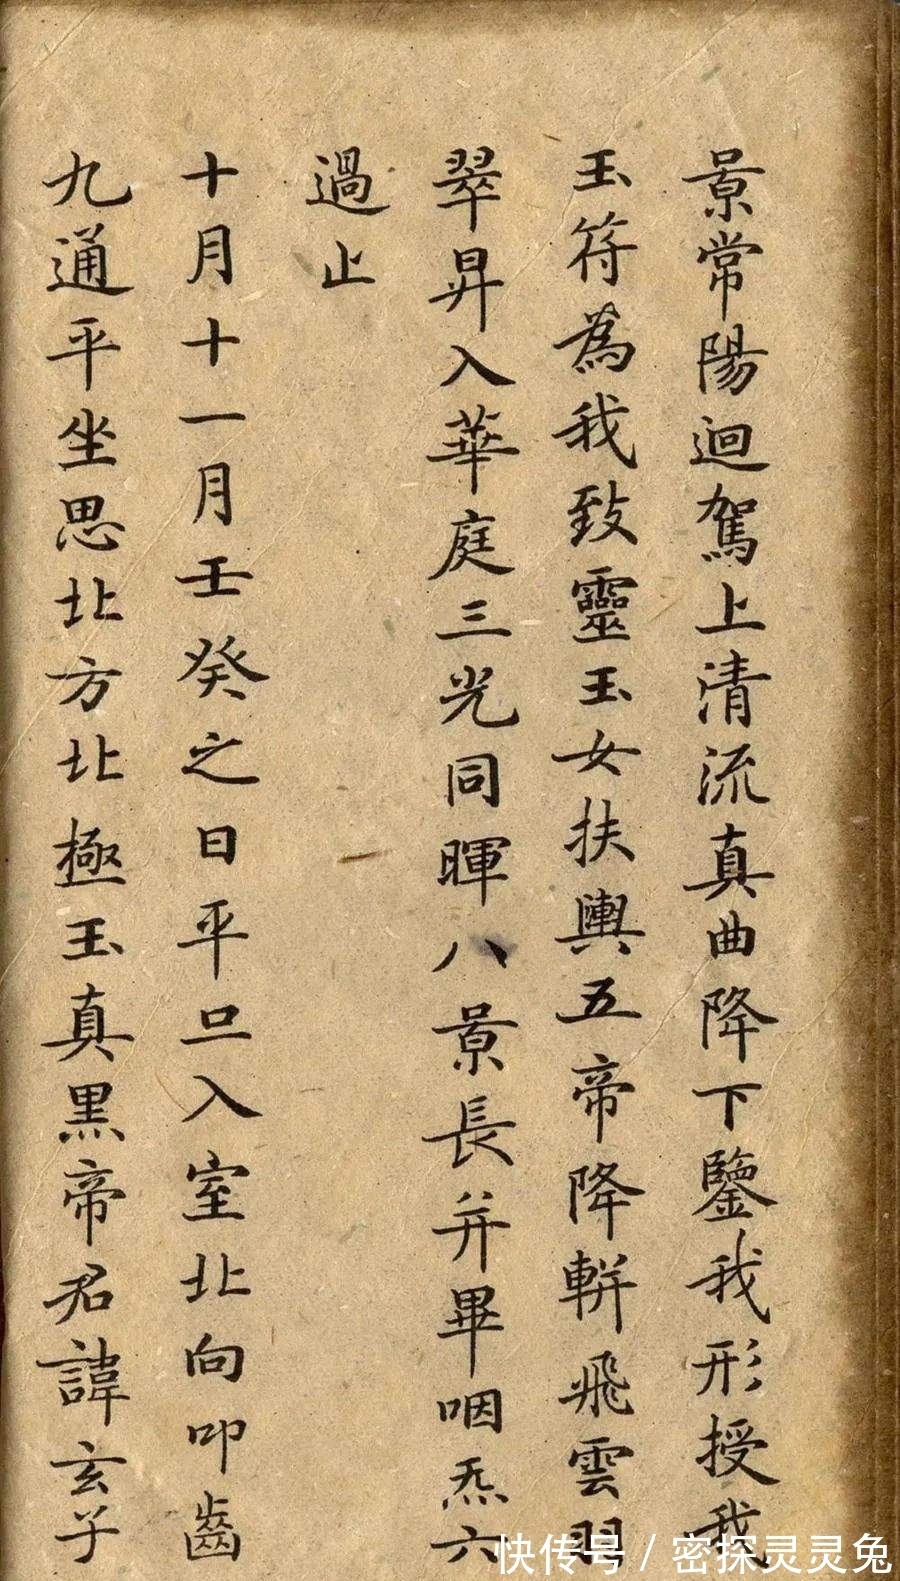 景常陽迴駕上清流真曲降下鑒我形授我
玉符為我致靈玉女扶輿五帝降軿飛雲羽
翠昇入華庭三光同暉八景長并畢咽炁六
過止
十月十一月壬癸之日平旦入室北向叩齒
九通平坐思北方北極玉真黑帝君諱玄子
快传号/密探灵灵兔